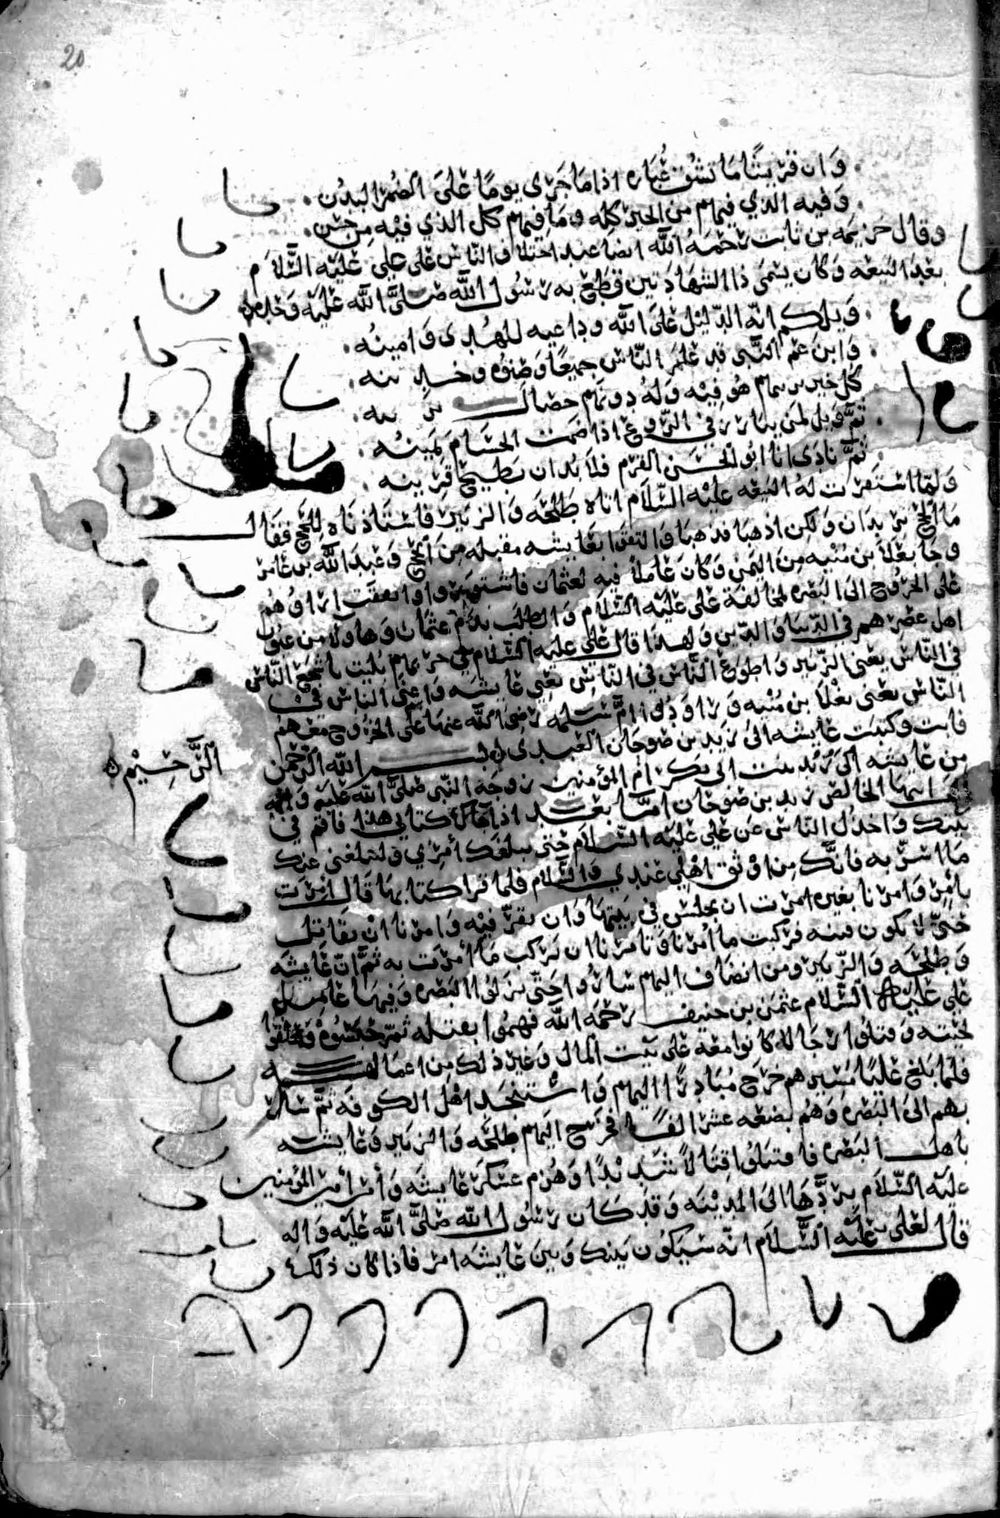 20
وان قريشًا ما تشق غباره اذا ما جرى يومًا على الضمر البدن
وفيه الذي فيهم من الخير كله وما فيهم كل الذي فيه من حسن
وقال خزيمة بن ثابت رحمه الله ايضا عند اختلاف الناس على علي عليه السلام
بعد البيعه وكان يسمى ذا الشهادتين قطع به رسول الله صلى الله عليه
ويلكم انه الدليل على الله وداعيه للهدى وامينه
وابن عم النبي قد علم الناس جميعا وصنوه وخدينه
كل خير يزينهم هو فيه وله دونهم خصال
ثم ويل لمن يبارز في الروع اذا ضمت الحسام يمينه
ثم نادى انا ابو الحسن القرم فلا بد ان يطيح قرينه
ولما استقرت له البيعه عليه السلام اتاه طلحه والزبير فاستاذناه للحج فقال
ما الحج تريدان ولكن اذهبا فذهبا والتقوا بعايشه مقبله من الحج وعبد الله بن عامر
وجا يعلا بن منبه من اليمن وكان عاملا فيه لعثمان فاشتوروا واتفقت اراوهم
على الخروج الى البصره لمخالفة علي عليه السلام والطلب بدم عثمان وهاولا من عيون
اهل عصرهم في الدنيا والدين ولهذا قال علي عليه السلام في حربهم بليت باشجع الناس
في الناس يعني الزبير واطوع الناس في الناس يعني عايشه واغنى الناس في
الناس يعني يعلا بن منبه وراودوا ام سلمه رضي الله عنها على الخروج معهم
فابت وكتبت عايشه الى زيد بن صوحان العبدي بسم الله الرحمن
الرحيم
من عايشه ابنة ابي بكر ام المؤمنين زوجة النبي صلى الله عليه واله
الى ابنها الخالص زيد بن صوحان اما بعد اذا اتاك كتابي هذا فاقم في
بيتك واخذل الناس عن علي عليه السلام حتى يبلغك امري وليبلغني عنك
ما اسر به فانك من اوثق اهلي عندي والسلام فلما قرا كتابها قال امرت
بامر وامرنا بغيره امرت ان تجلس في بيتها وان تقر فيه وامرنا ان نقاتل
حتى لا تكون فتنه فركبت ما امرنا وتامرنا ان نركب ما امرت به ثم ان عايشه
وطلحه والزبير ومن انضاف اليهم ساروا حتى نزلوا البصره وفيها عامل
علي عليه السلام عثمن بن حنيف رحمه الله فهموا بقتله ثم حبسوه ونتفوا
لحيته وقتلوا رجاله كانوا معه على بيت المال وغير ذلك من اعمالهم
فلما بلغ عليا مسيرهم خرج مبادرًا اليهم واستنجد اهل الكوفه ثم سار
بهم الى البصره وهم بضعه عشر الفا فخرج اليهم طلحه والزبير وعايشه
باهل البصره فاقتتلوا قتالا شديدًا وهزم عسكر عايشه وأمر أمير المؤمنين
عليه السلام بردها الى المدينه وقد كان رسول الله صلى الله عليه واله
قال لعلي عليه السلام انه سيكون بينك وبين عايشه امر فاذا كان ذلك